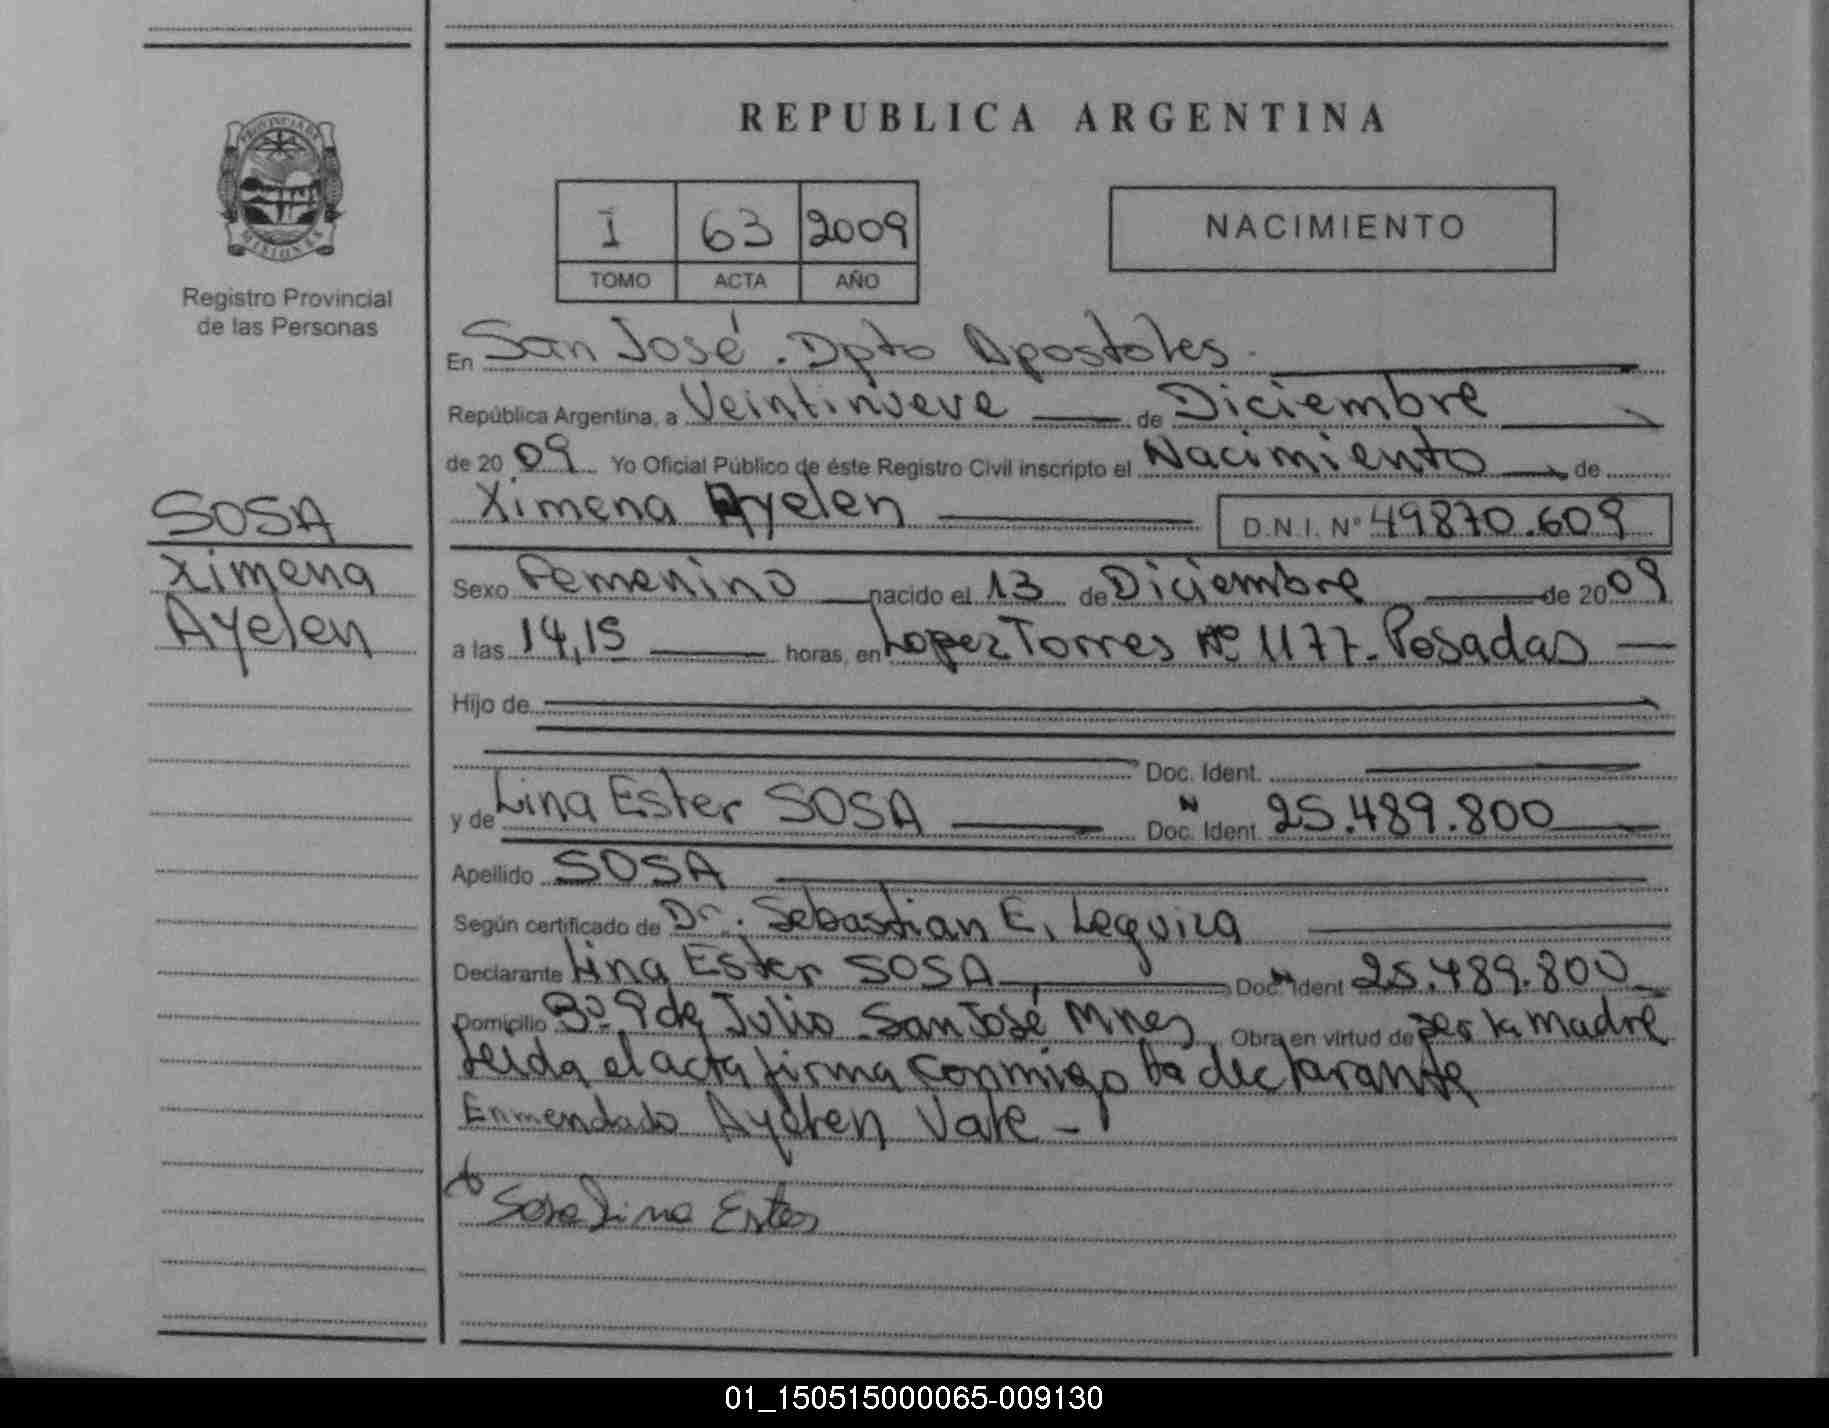 REPUBLICA ARGENTINA
PROVINCIA DE MISIONES
Registro Provincial
de las Personas
I 63 2009
TOMO ACTA AÑO
NACIMIENTO
En San José. Dpto Apostoles.
República Argentina, a Veintinueve de Diciembre
de 2009 Yo Oficial Público de éste Registro Civil inscripto el Nacimiento de
Ximena Ayelen D.N.I. Nº 49870.609
SOSA
Ximena
Ayelen
Sexo Femenino nacido el 13 de Diciembre de 2009
a las 14,15 horas, en Lopez Torres Nº 1177- Posadas
Hijo de
Doc. Ident.
y de Lina Ester SOSA Doc. N Ident. 25.489.800
Apellido SOSA
Según certificado de Dr. Sebastian E. Leguiza
Declarante Lina Ester SOSA Doc. N Ident 25.489.800
Domicilio Bº 9 de Julio San José Mnes Obra en virtud de ser la madre
Leida el acta firma conmigo la declarante
Enmendado Ayelen Vale -
Sosa Lina Ester
01_150515000065-009130